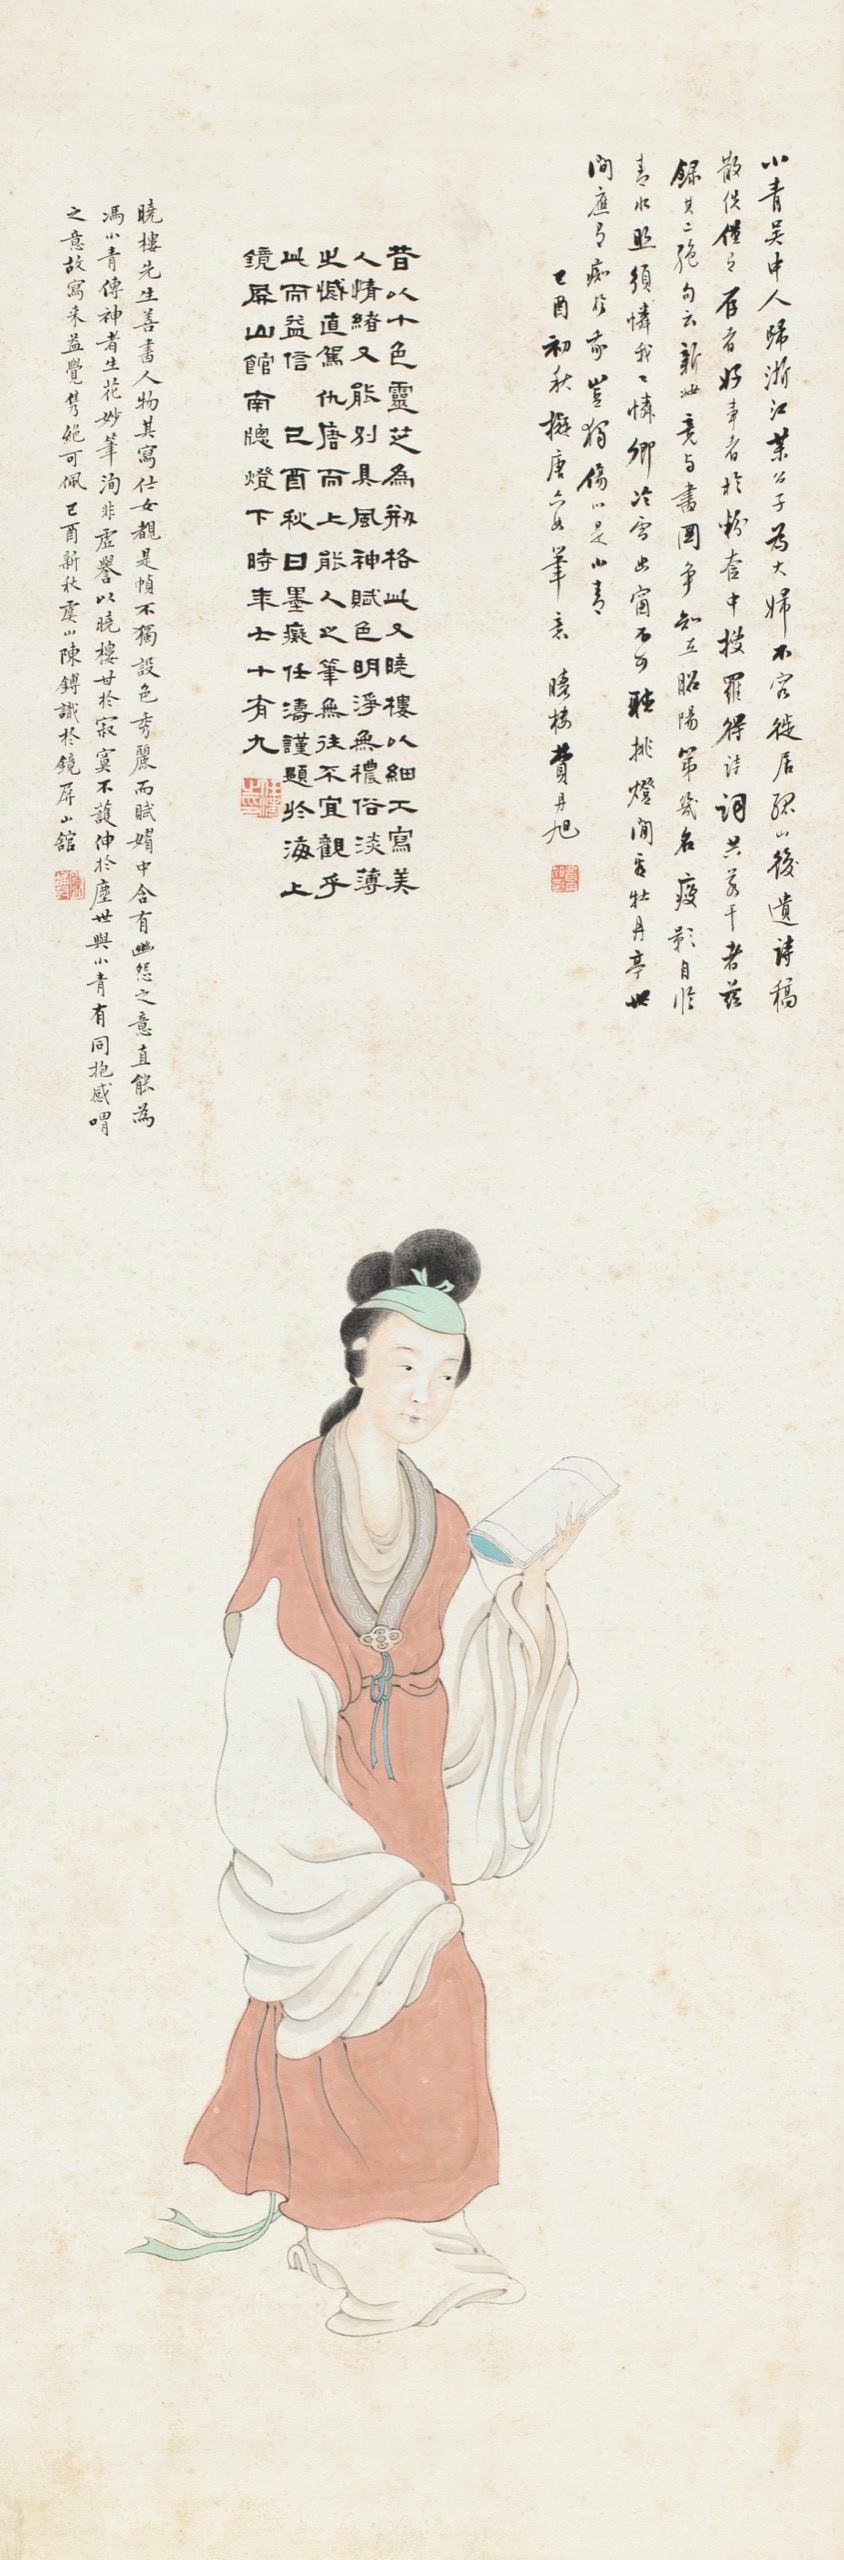 小青吴中人歸浙江某公子為大婦不容徙居孤山後遺詩稿
散佚僅有存者好事者於粉奩中搜羅得詩詞共若干者茲
錄其二絕句云新妝竟与畫圖争知在昭陽第幾名瘦影自临
春水照須憐我我憐卿冷雨幽窗不可聽挑燈閒看牡丹亭世
間應有痴於我豈獨傷心是小青
己酉初秋擬唐六如筆意 曉樓費丹旭
昔以十色靈芝為格此又曉樓以細工寫美
人情緒又能別具風神賦色明淨無穠俗淡薄
之憾直駕仇唐而上能人之筆無往不宜觀乎
此而益信 己酉秋日墨癡任濤謹題於海上
鏡屏山館南牕燈下時年七十有九
任濤之印
曉樓先生善畫人物其寫仕女覩是幀不獨設色秀麗而賦媚中含有幽怨之意直能為
馮小青傳神者生花妙筆洵非虛譽以曉樓甘於寂寞不護伸於塵世與小青有同抱感喟
之意故寫来益覺雋絕可佩 己酉新秋虞山陳鎛識於鏡屏山館